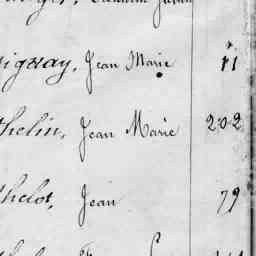 igray, Jean Marie 11
thelin, Jean Marie 202
thelot, Jean 79